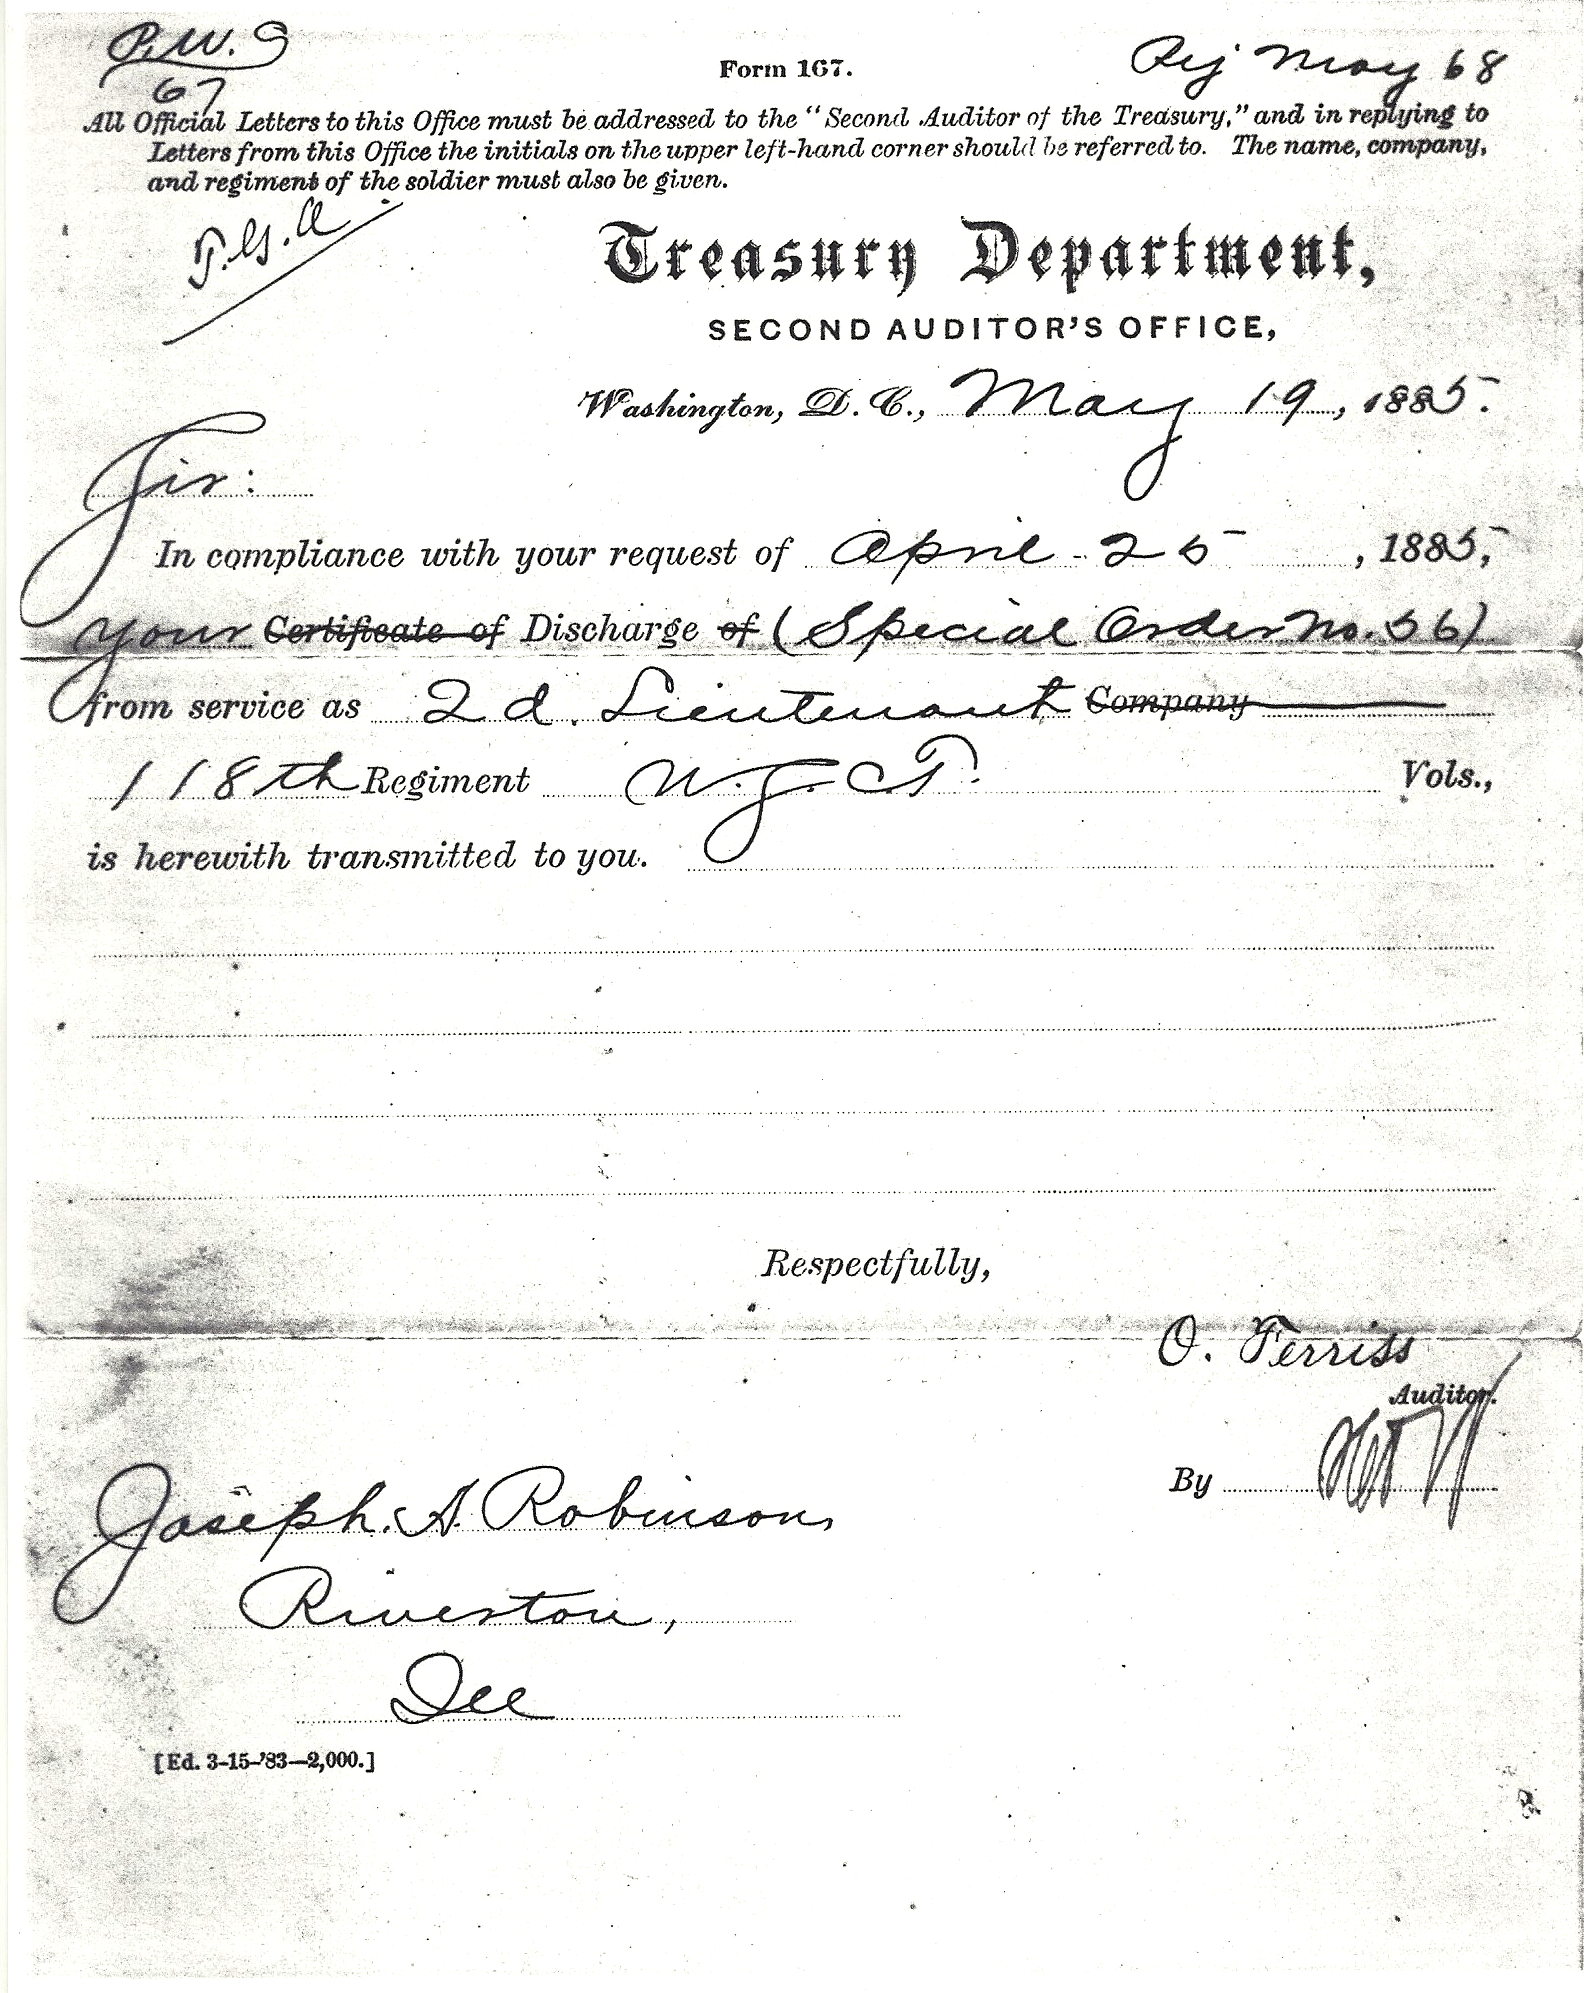 P.W. S
67
Form 167.
Rej May 68
All Official Letters to this Office must be addressed to the "Second Auditor of the Treasury," and in replying to
Letters from this Office the initials on the upper left-hand corner should be referred to. The name, company,
and regiment of the soldier must also be given.
Treasury Department,
SECOND AUDITOR'S OFFICE,
Washington, D. C., May 19, 1885.
Sir:
In compliance with your request of April 25, 1885,
your Certificate of Discharge of (Special Order No. 56)
from service as 2d. Lieutenant Company
118th Regiment U.S.C.T. Vols.,
is herewith transmitted to you.
Respectfully,
O. Ferriss
Auditor.
By
Joseph. A. Robinson,
Riverton,
Ill
[Ed. 3-15-'83—2,000.]